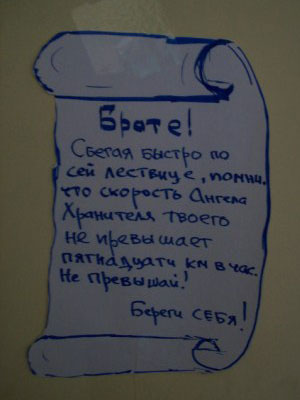 Брате!
Сбегая быстро по
сей лествице, помни,
что скорость Ангела
Хранителя твоего
не превышает
пятнадцати км в час.
Не превышай!
Береги СЕБЯ!